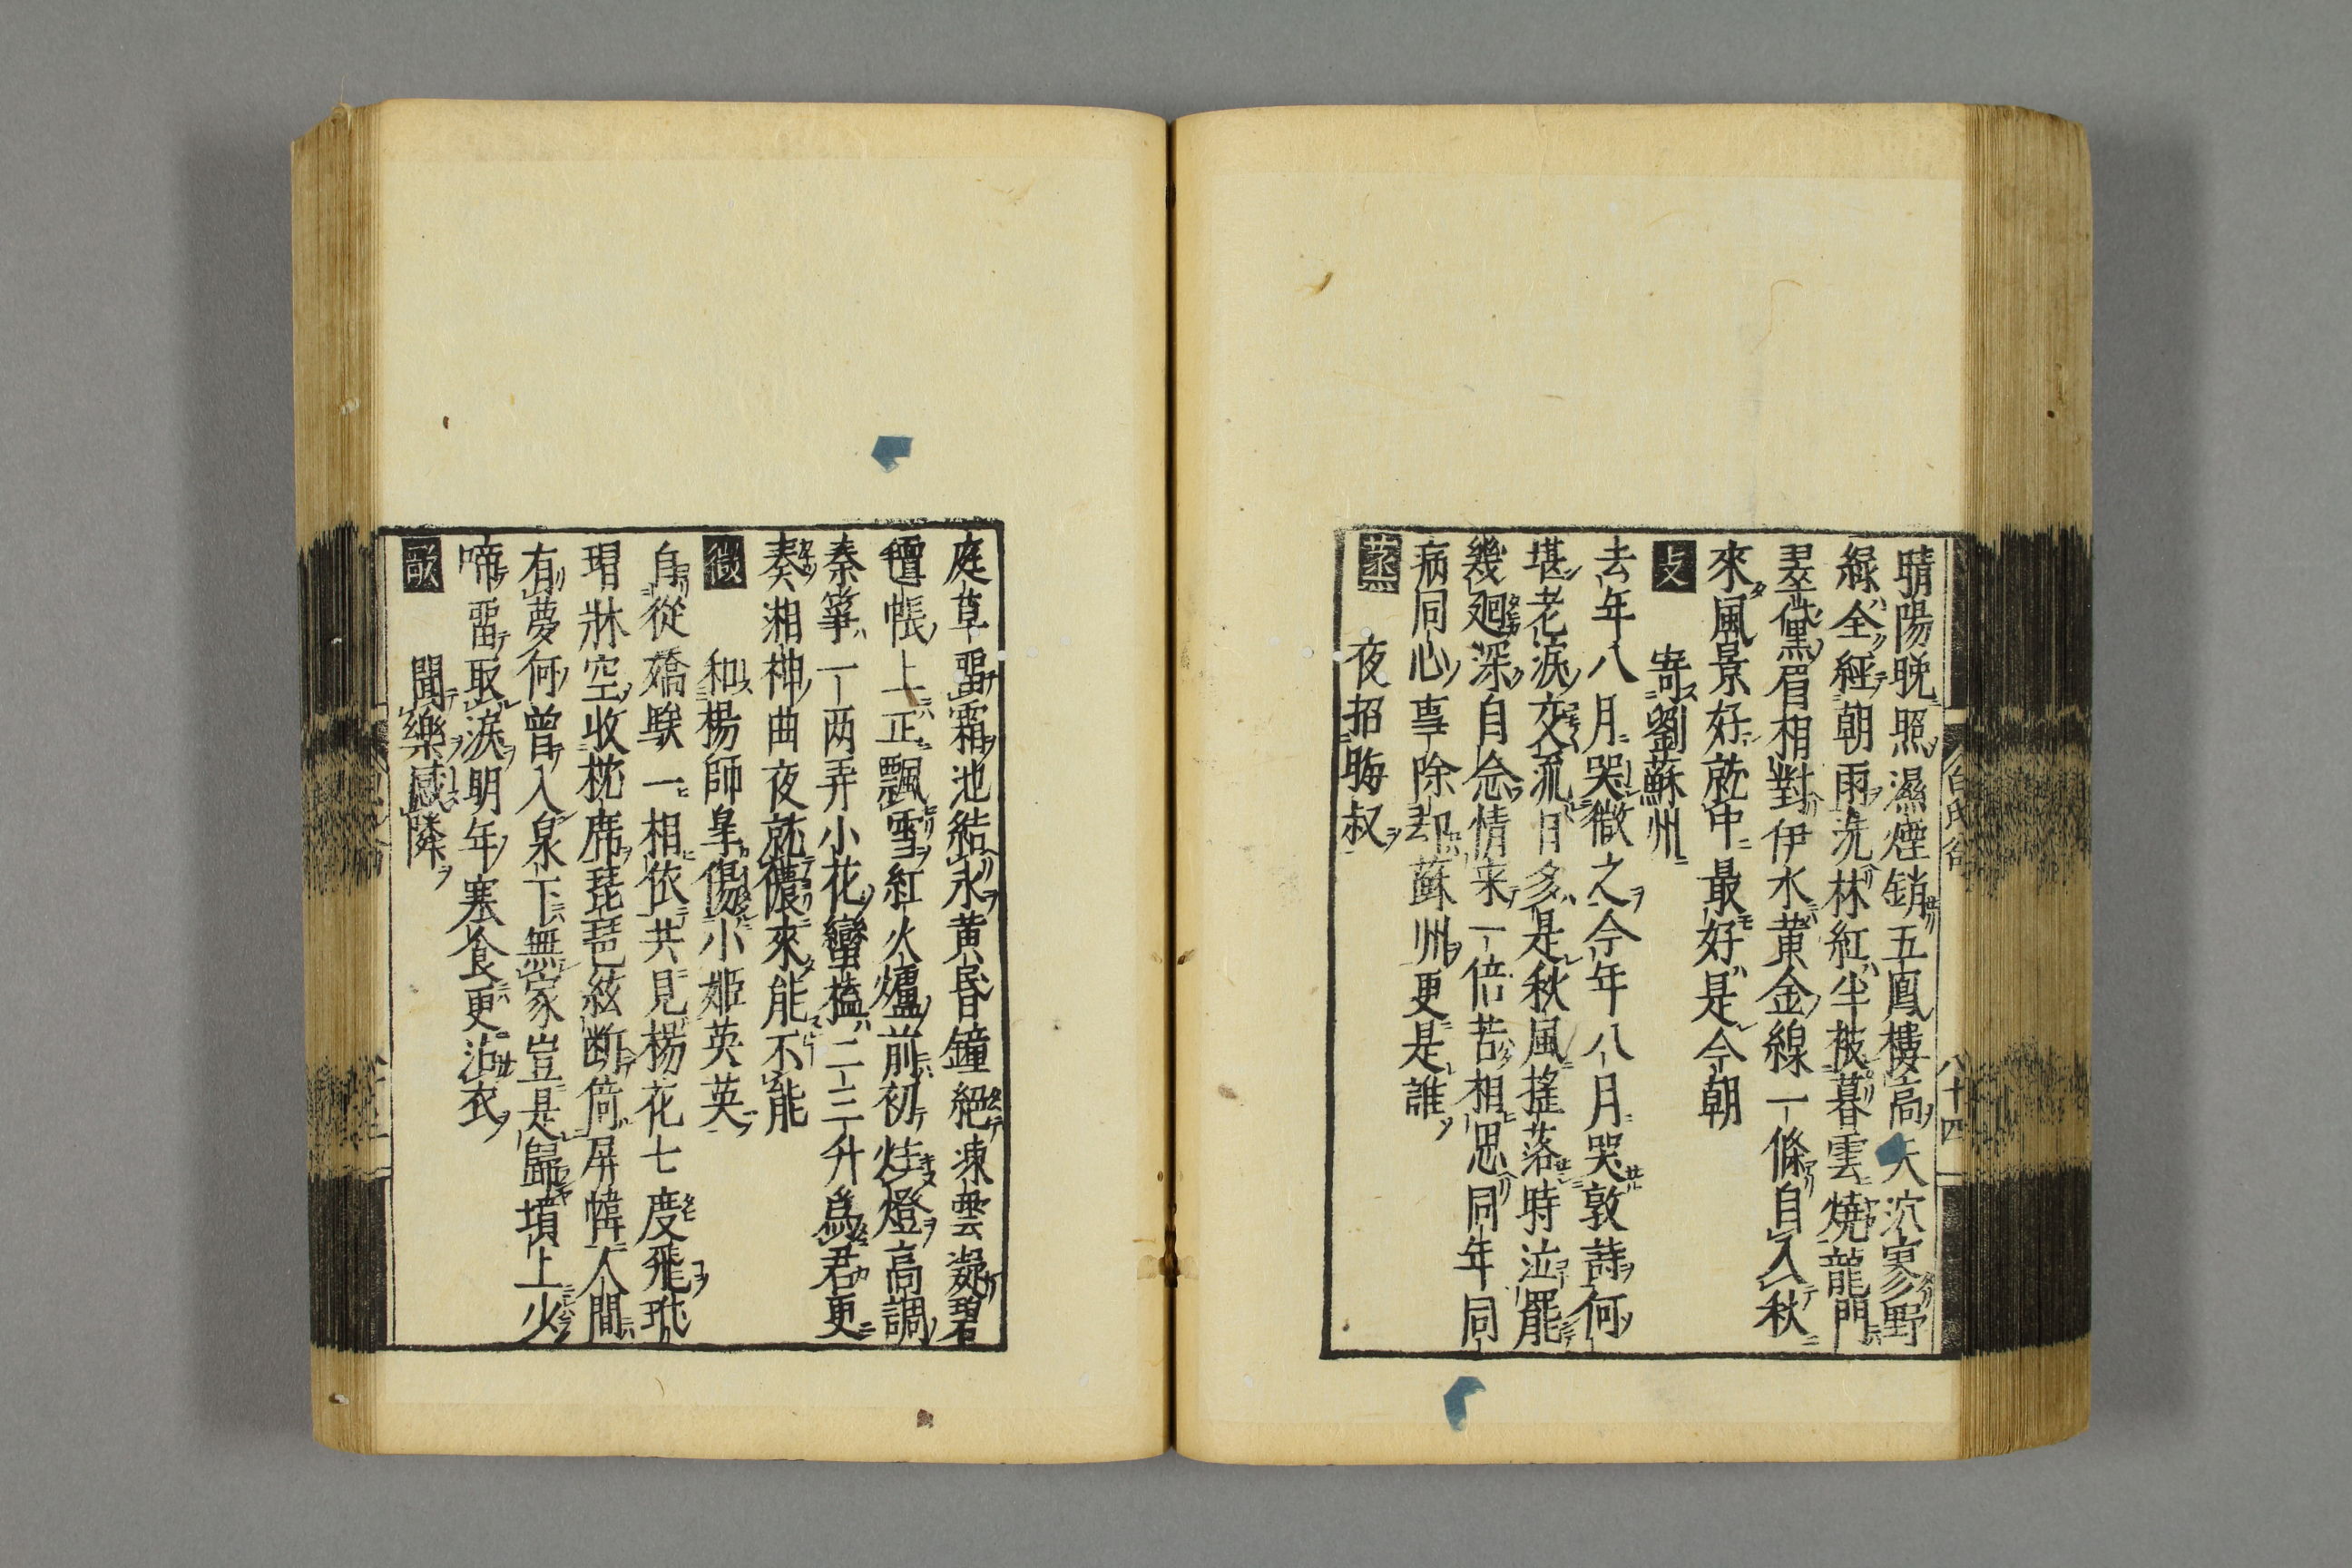 晴陽晩照濕煙銷五鳳樓高天泬寥野
緑全經朝雨洗林紅半被暮雲燒龍門
翠黛眉相對伊水黄金線一條自入秋
來風景好就中最好是今朝
支 寄劉蘇州
去年八月哭微之今年八月哭敦詩何
堪老淚交流日多是秋風搖落時泣罷
幾廻深自念情来一倍苦相思同年同
病同心事除却蘇州更是誰
蒸 夜招晦叔
庭草畱霜池結氷黄昏鐘絕凍雲凝碧
氊帳上正飄雪紅火爐前初炷燈高調
秦箏一両弄小花蠻榼二三升爲君更
奏湘神曲夜就儂來能不能
微 和楊師皐傷小姬英英
自從嬌騃一相依共見楊花七度飛玳
瑁牀空收枕席琵琶絃断倚屏幃人間
有夢何曾入泉下無家豈是歸墳上火
啼畱取淚明年寒食更沾衣
歌 聞樂感隣
白氏
八十四